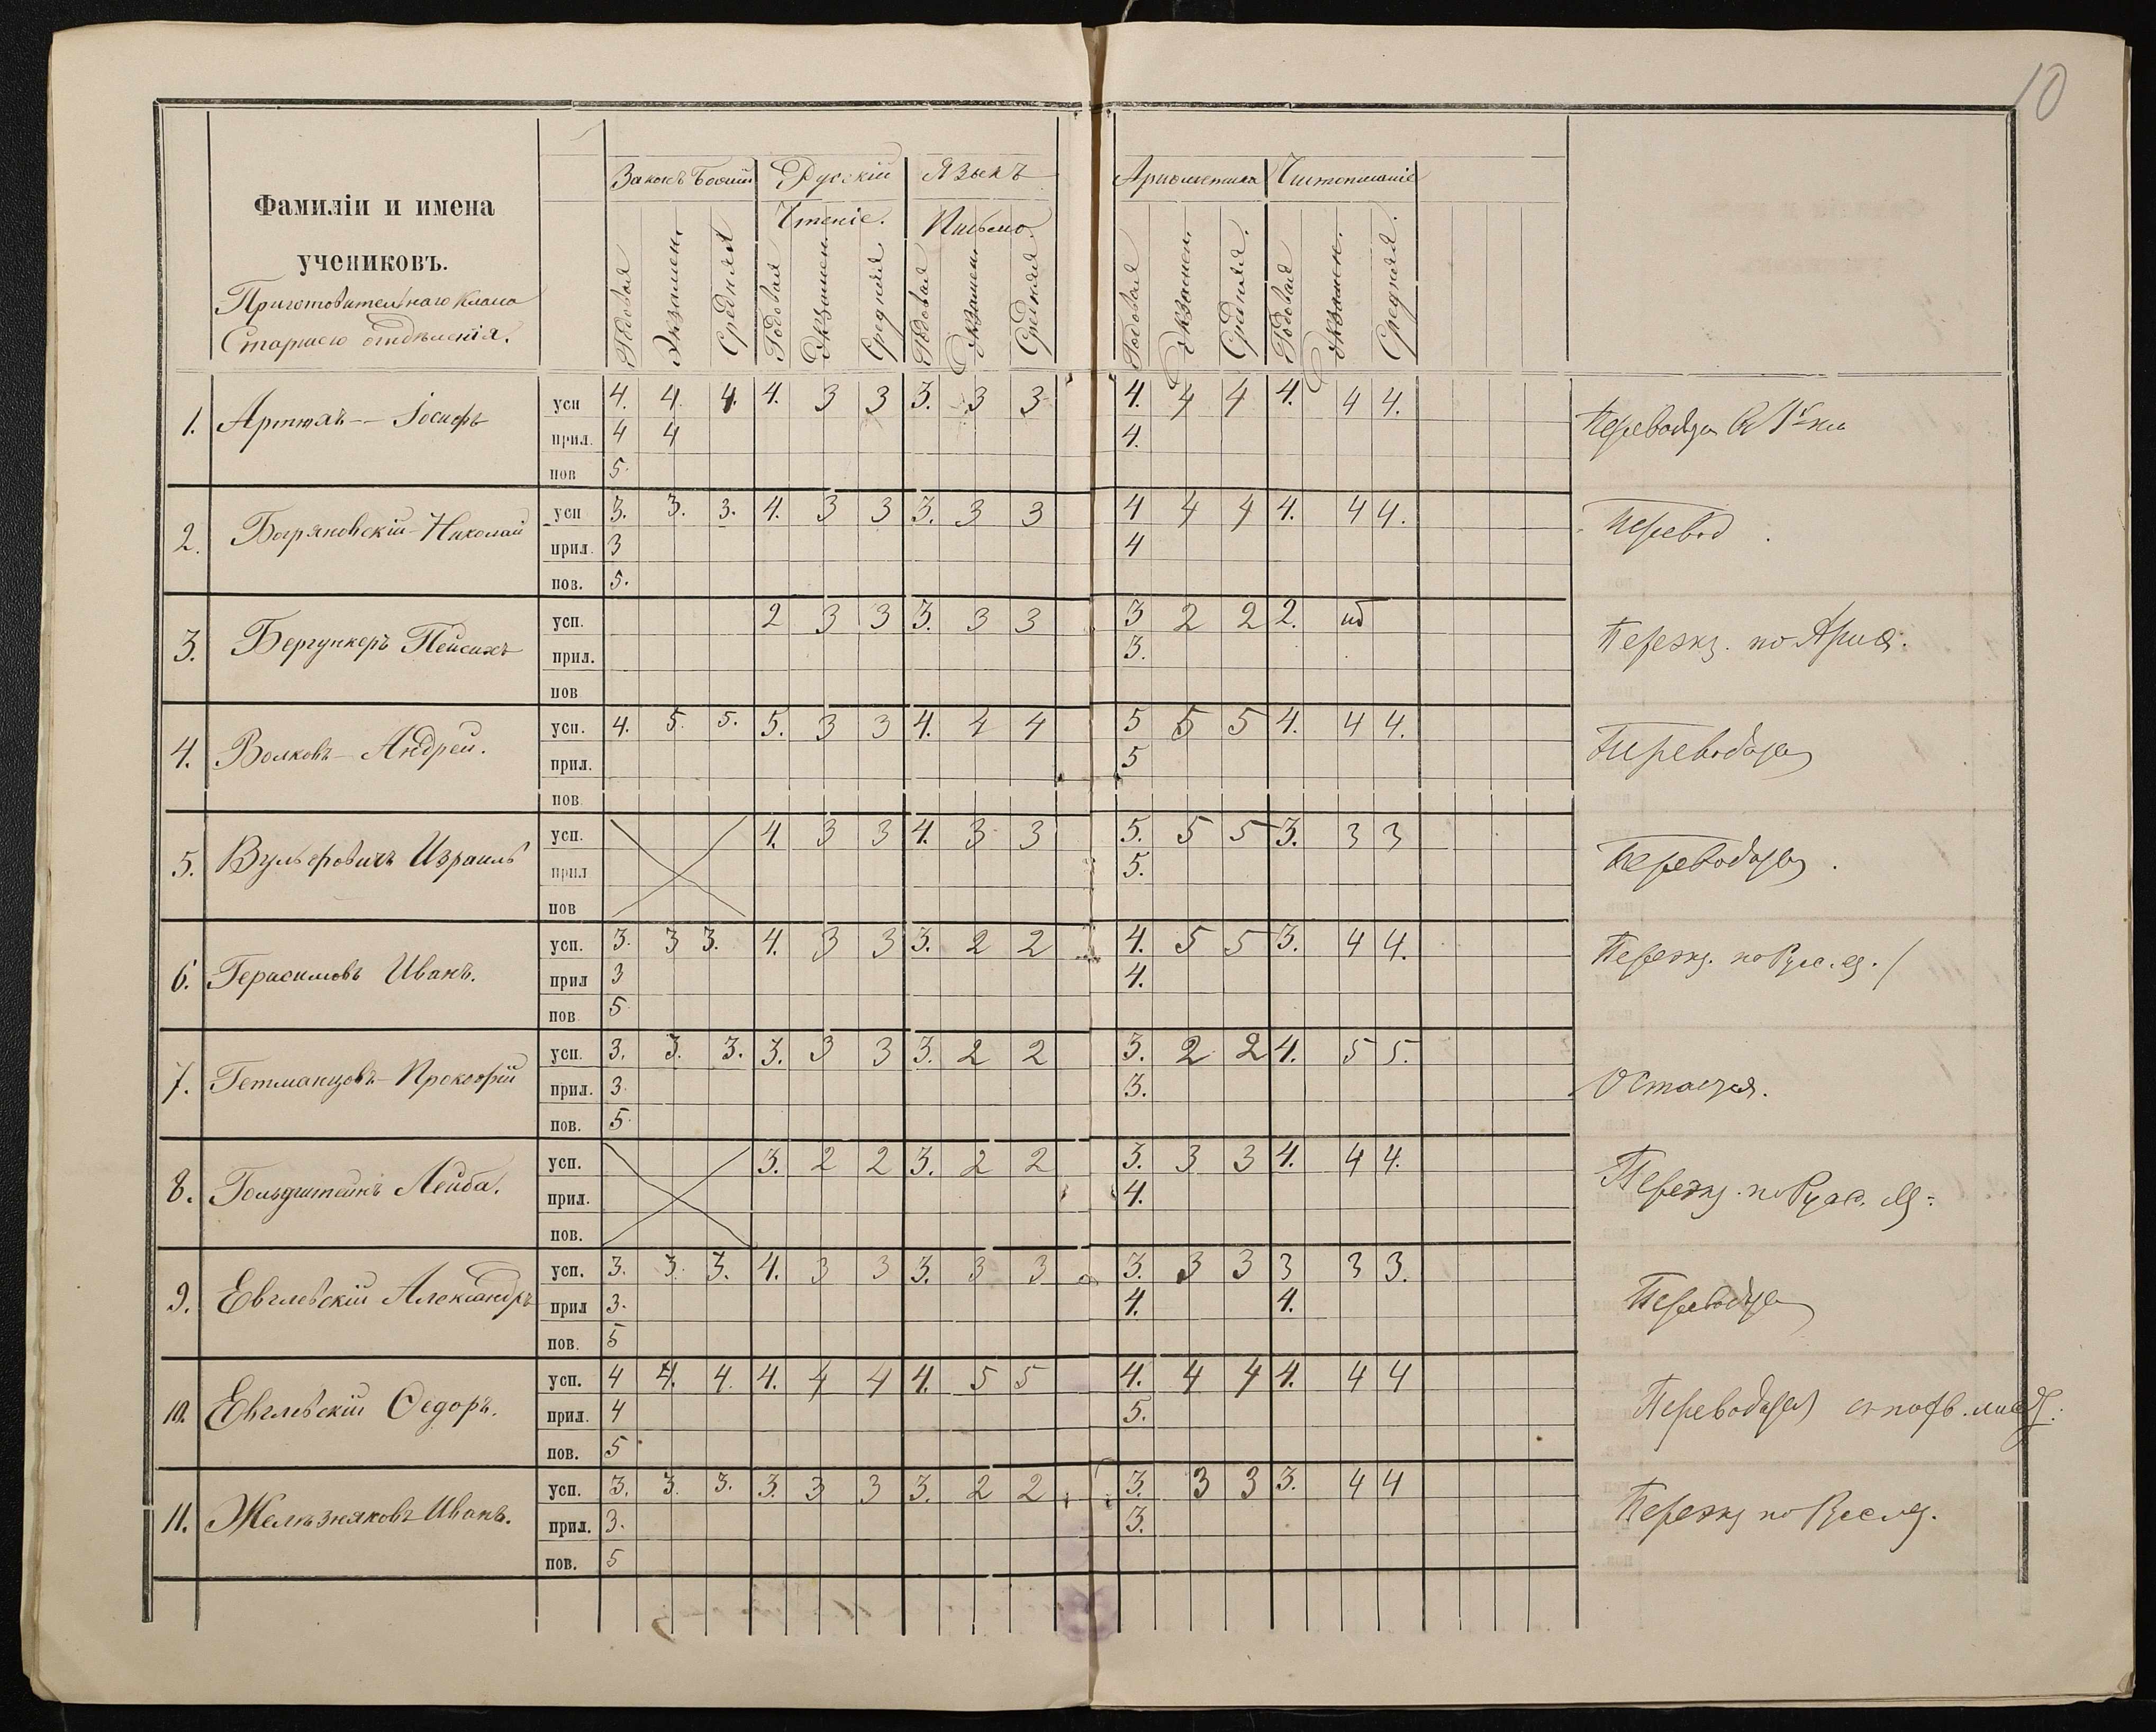 10
Фамиліи и имена
учениковъ.
Приготовительнаго класса
Старшаго отдѣленія.
Законъ Божій Русскій Языкъ Ариѳметика Чистописаніе
Чтеніе. Письмо
Годовая Экзамен. Средняя Годовая Экзамен. Средняя Годовая Экзамен. Средняя Годовая Экзамен. Средняя. Годовая Экзамен. Средняя.
1. Іосифъ усп 4. 4 4. 4. 3 3 3. 3 3 4. 4 4 4. 4 4.
прил. 4 4 4.
пов 5.
2. Николай усп 3. 3. 3. 4. 3 3 3. 3 3 4 4 4 4. 4 4. Перевод
прил. 3 4
поз. 5.
3. Бергункеръ Пейсахъ усп. 2 3 3 3. 3 3 3 2 2 2. Переэкз. по Ариѳ.
прил. 3.
пов
4. Волковъ Андрей. усп. 4. 5. 5. 5. 3 3 4. 4 4 5 5 5 4. 4 4. Переводится
прил. 5
пов.
5. Вульфовичъ Израиль усп. 4. 3 3 4. 3 3 5. 5 5 3. 3 3 Переводится.
прил 5.
пов
6. Герасимовъ Иванъ. усп. 3. 3 3. 4. 3 3 3. 2 2 4. 5 5 3. 4 4. Переэкз. по Русс. яз.
прил 3 4.
пов 5
7. Гетманцовъ Прокофій усп. 3. 3. 3. 3. 3 3 3. 2 2 3. 2 2 4. 5 5. Остается.
прил. 3. 3.
пов. 5.
8. Гольдштейнъ Лейба. усп. 3. 2 2 3. 2 2 3. 3 3 4. 4 4. Переэкз. по Русс. яз.
прил. 4.
пов.
9. Евглевскій Александръ усп. 3. 3. 3. 4. 3 3 3. 3 3 3. 3 3 3 3 3. Переводится
прил 3. 4. 4.
пов. 5
10. Евглевскій Ѳедоръ. усп. 4 4. 4. 4. 4 4 4. 5 5 4. 4 4 4. 4 4 Переводится съ похв. лист.
прил. 4 5.
пов. 5
11. Желѣзняковъ Иванъ. усп. 3. 3. 3. 3. 3 3 3. 2 2 3. 3 3 3. 4 4 Переэкз по Рус яз.
прил. 3. 3.
пов. 5